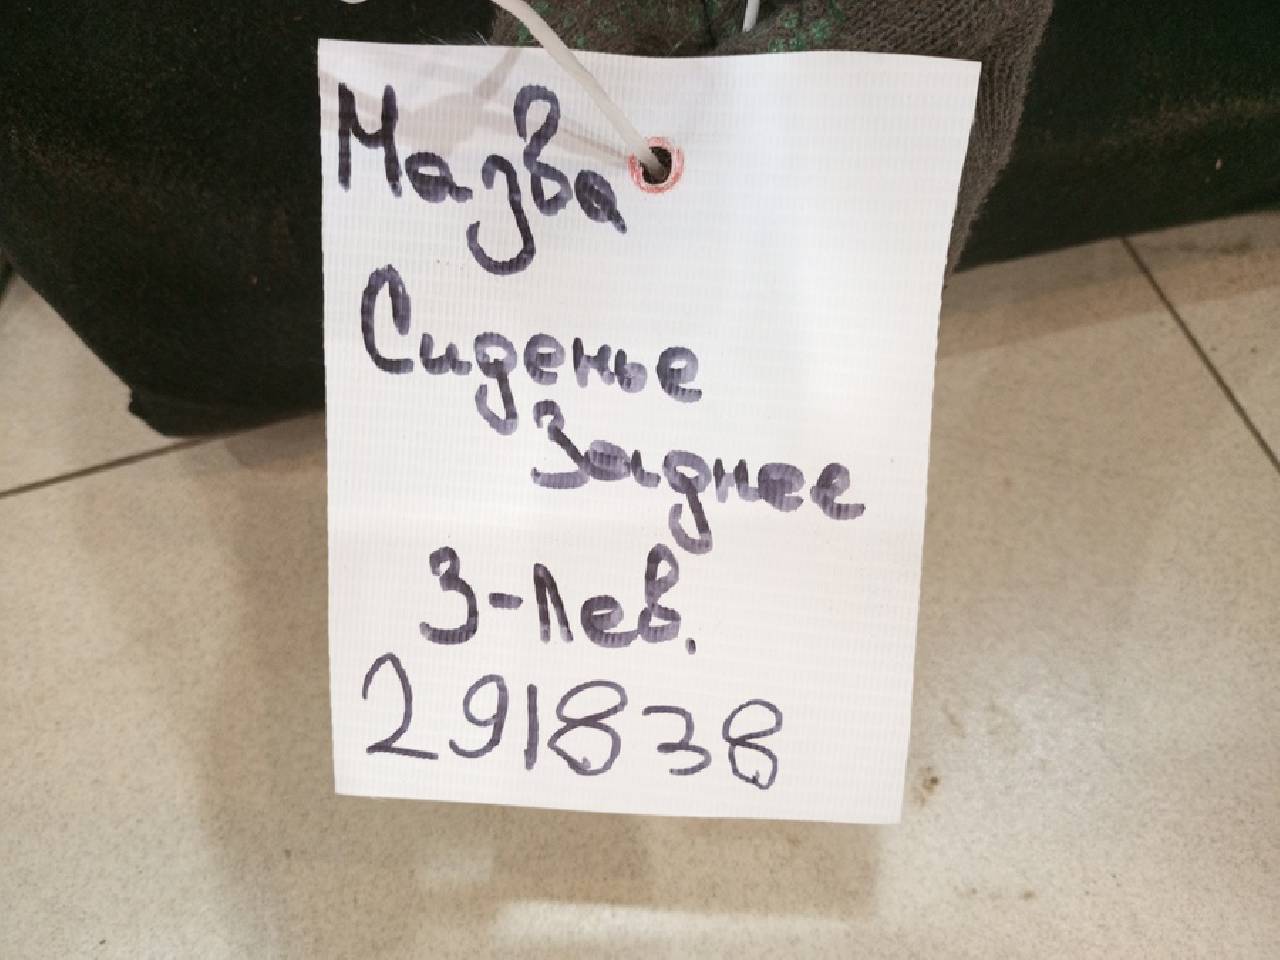 Мазва
Сиденье
Заднее
3-Лев.
291838